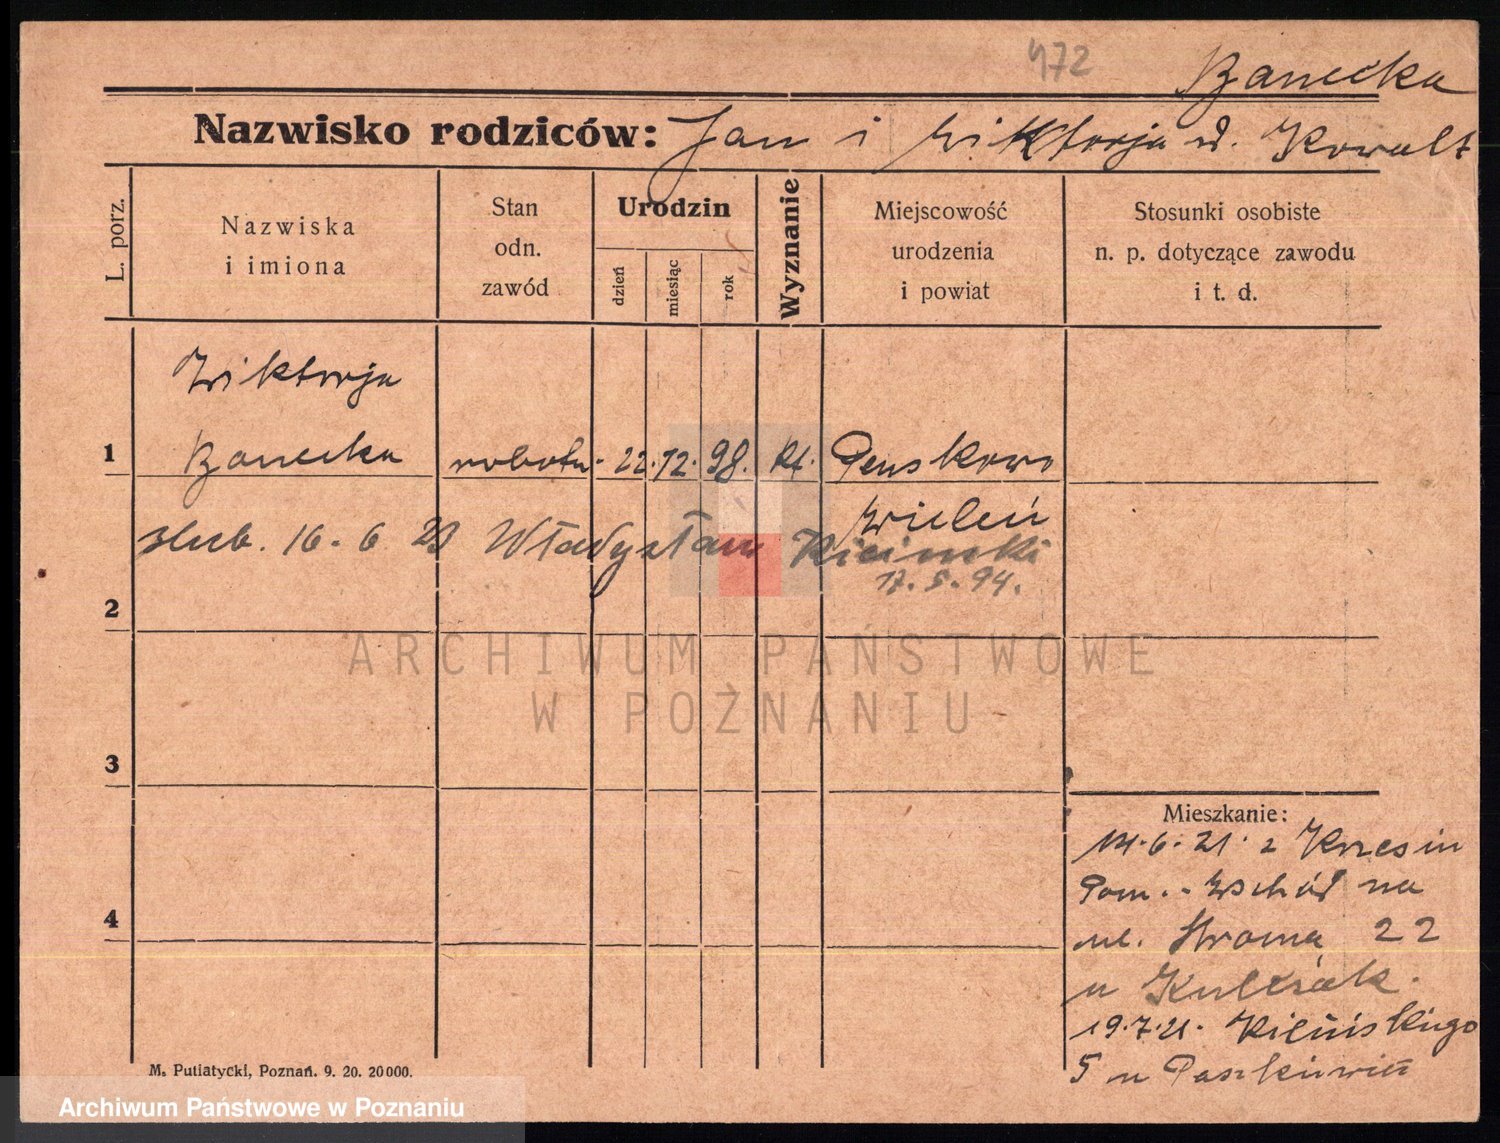 472
Banecka
Nazwisko rodziców: Jan i Wiktorja d. Kowalt
L. porz.
Nazwiska
i imiona
Stan
odn.
zawód
Urodzin
dzień
miesiąc
rok
Wyznanie
Miejscowość
urodzenia
i powiat
Stosunki osobiste
n. p. dotyczące zawodu
i t. d.
Wiktorja
1 Banecka robotn. 22. 12. 98. kt. Penskowo
Wieleń
slub. 16. 6 23 Władysław Kicinski
17. 5. 94.
2
ARCHIWUM PAŃSTWOWE
W POZNANIU
3
Mieszkanie:
14. 6. 21. z Krzesin
Pom. - Wschód na
4
ul. Stroma 22
u Kulczak.
19. 7. 21. Kilińskiego
5 u Paszkiewicz
M. Putiatycki, Poznań. 9. 20. 20000.
Archiwum Państwowe w Poznaniu